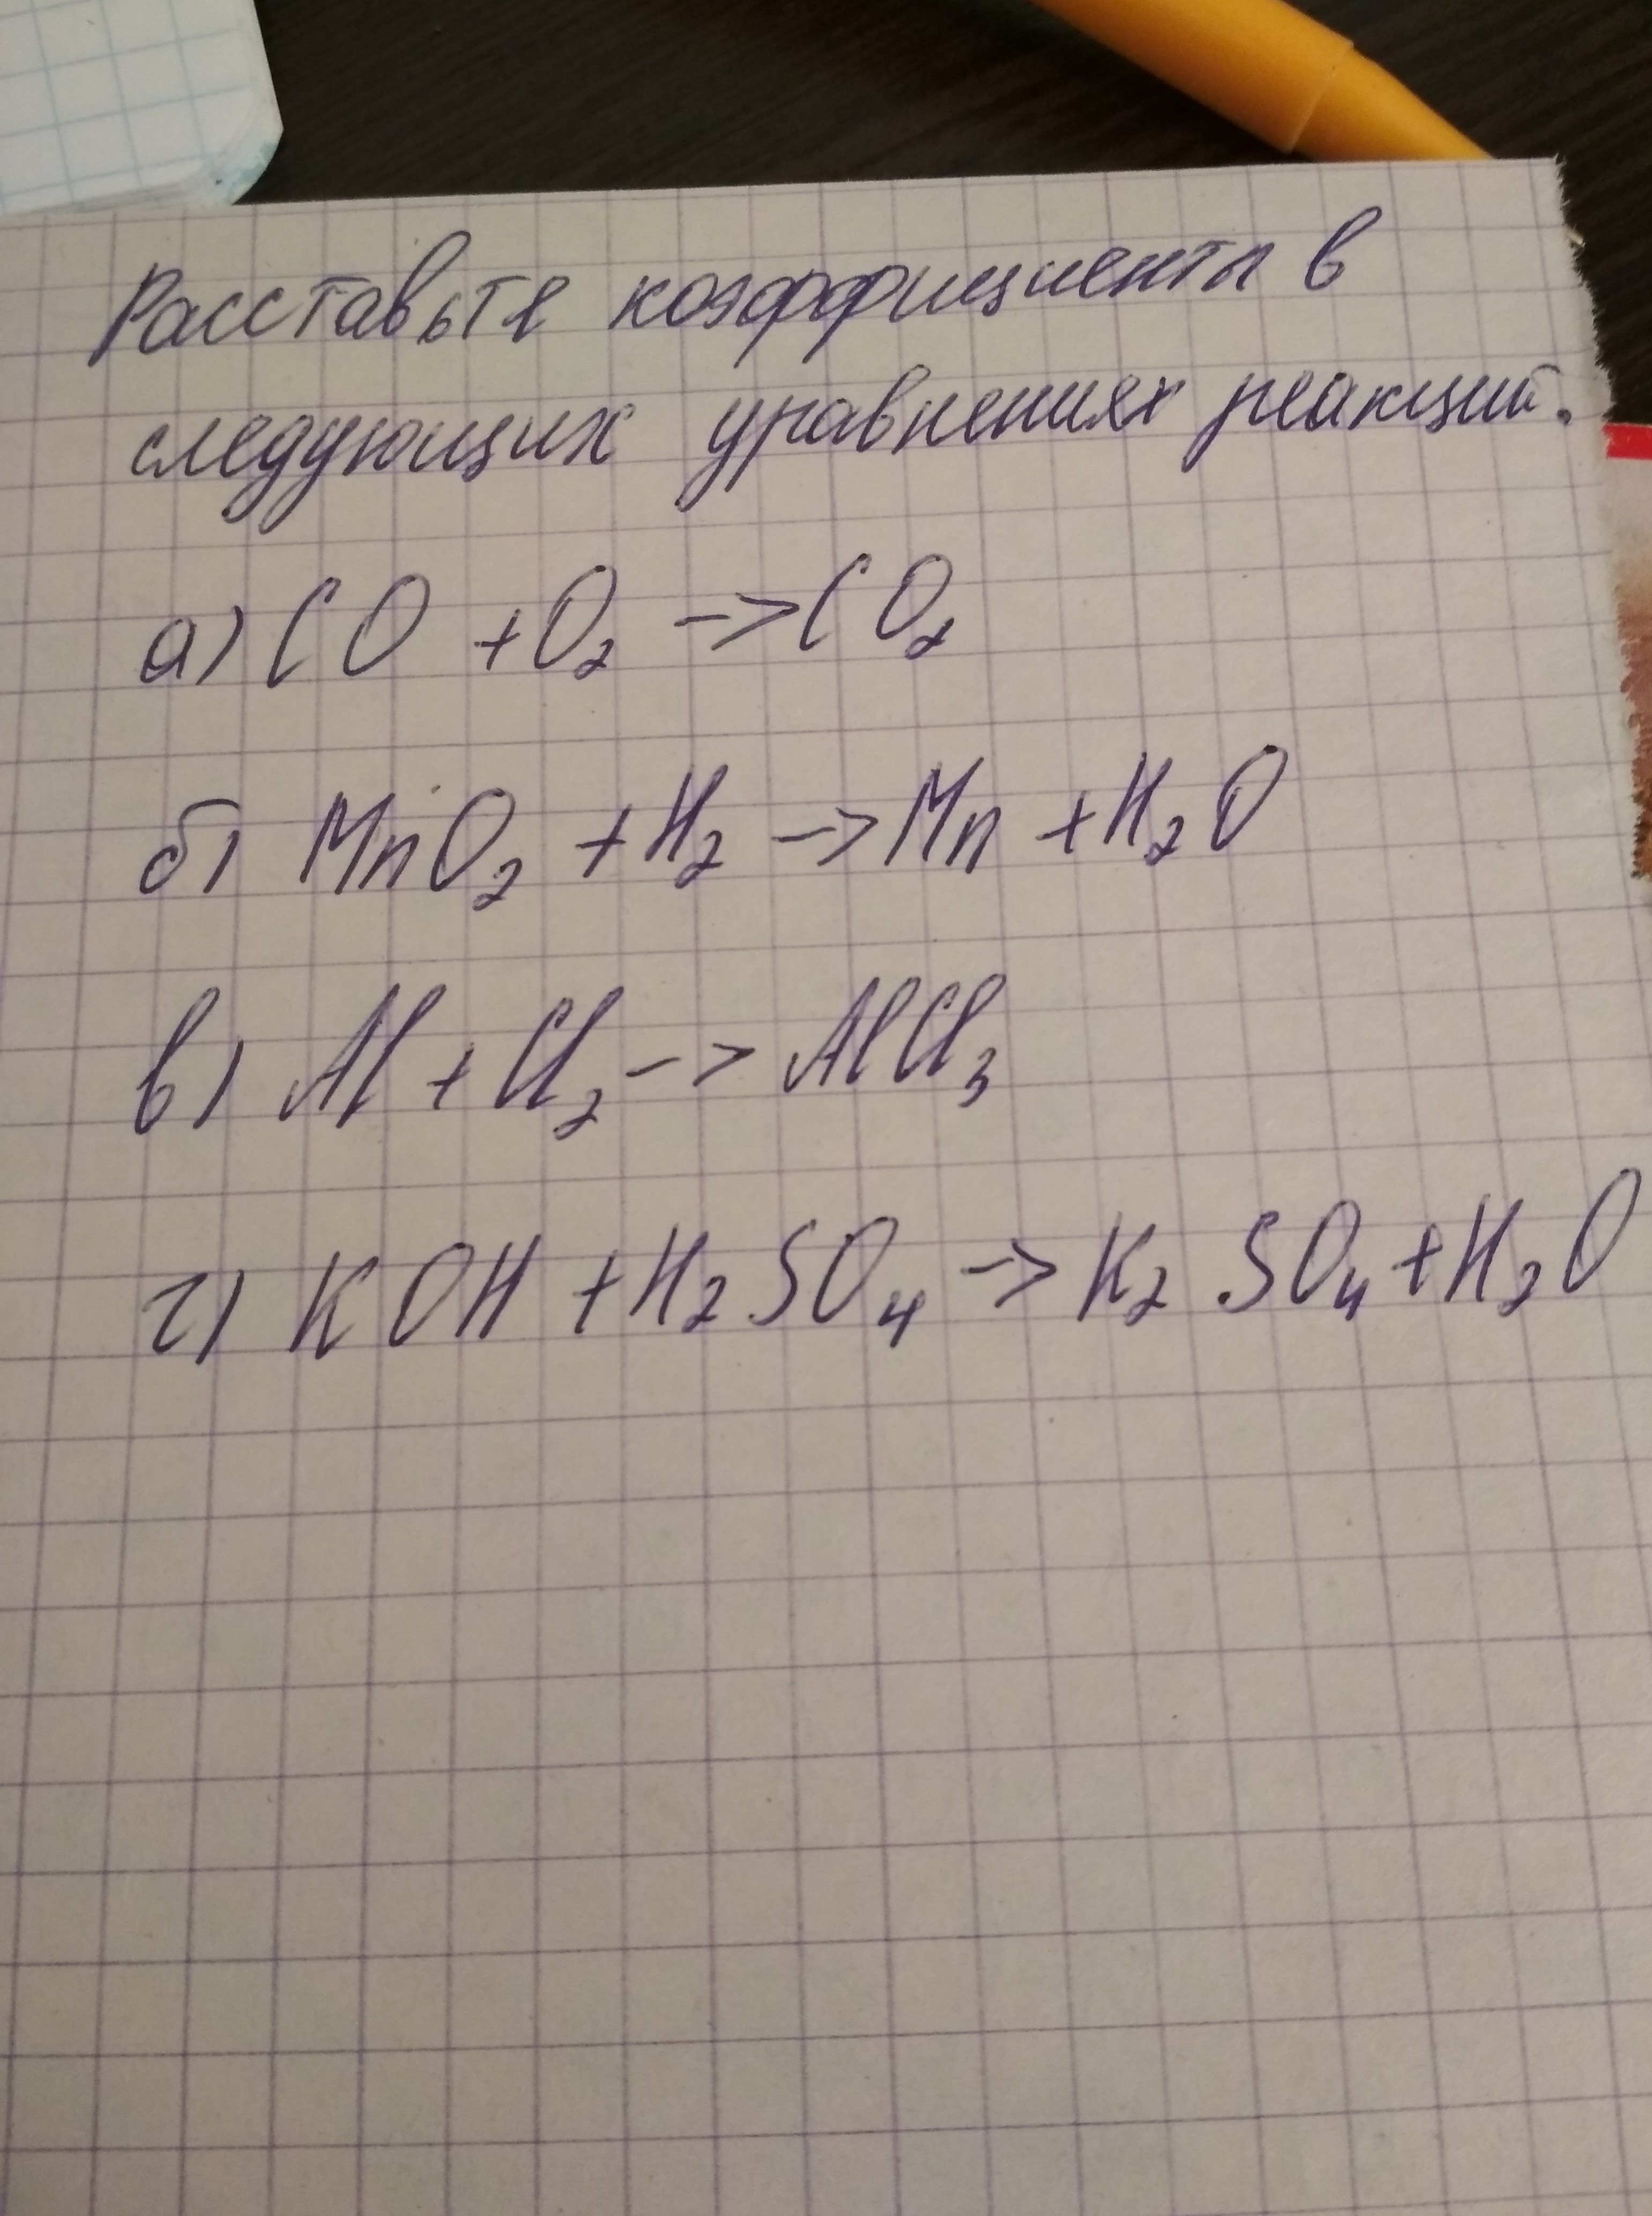 Расставьте коэффициенты в
следующих уравнениях реакций.
а) CO + O₂ -> CO₂
б) MnO₂ + H₂ -> Mn + H₂O
в) Al + Cl₂ -> AlCl₃
г) KOH + H₂SO₄ -> K₂SO₄ + H₂O